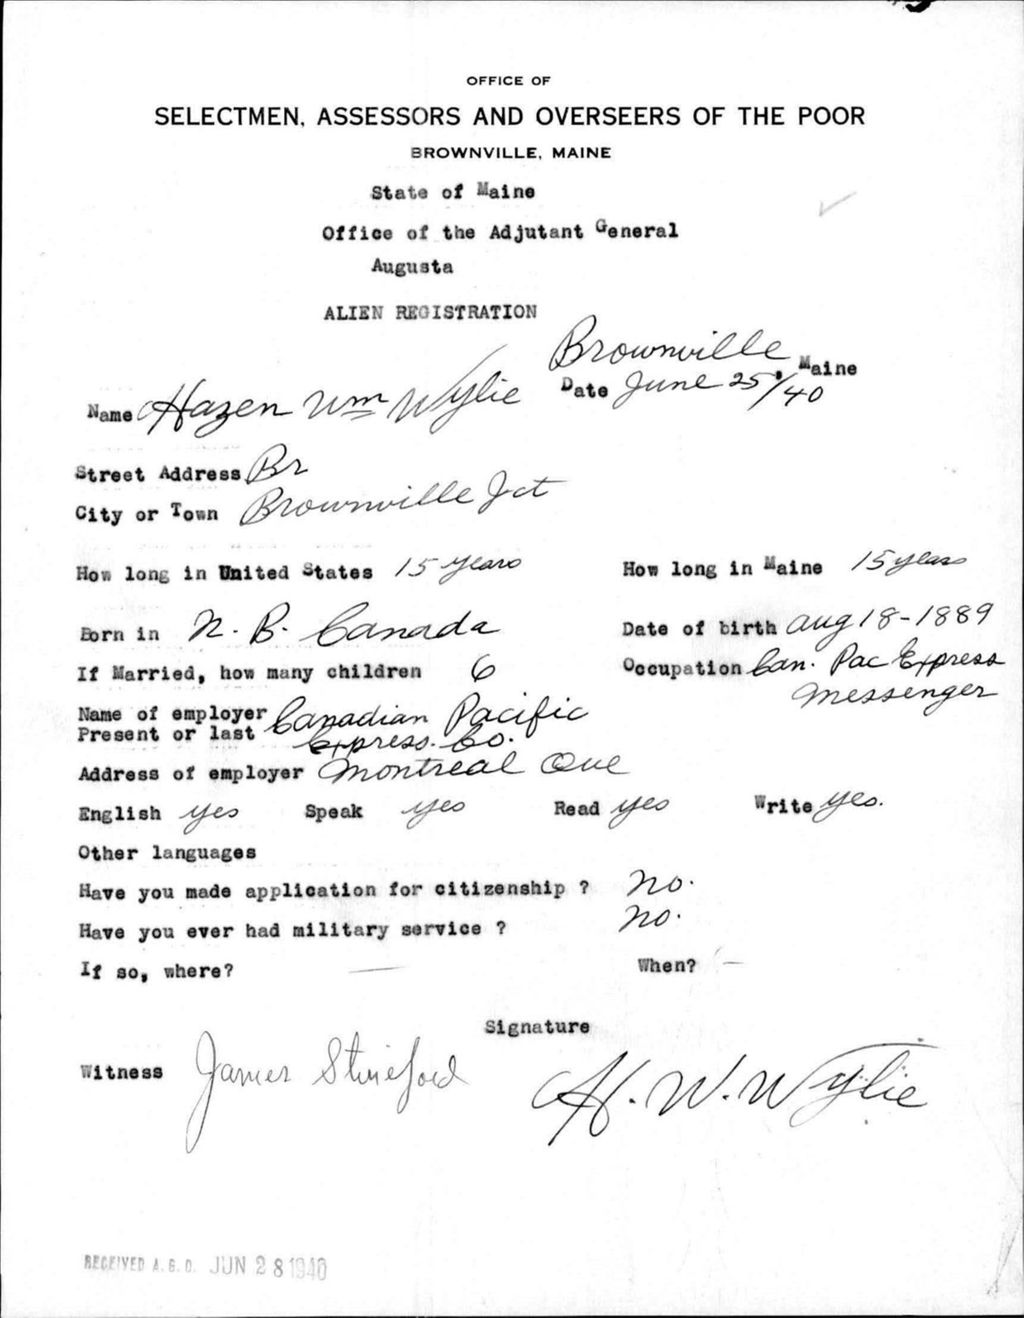 OFFICE OF
SELECTMEN, ASSESSORS AND OVERSEERS OF THE POOR
BROWNVILLE, MAINE
State of Maine
Office of the Adjutant General
Augusta
ALIEN REGISTRATION
Brownville, Maine
Name Hazen Wm Wylie Date June 25, /40
Street Address Br
City or Town Brownville Jct
How long in United States 15 years How long in Maine 15 years
Born in N. B. Canada Date of birth Aug 18-1889
If Married, how many children 6 Occupation Can. Pac Express
Messenger
Name of employer Canadian Pacific
Present or last Express. Co.
Address of employer Montreal Que
English yes Speak yes Read yes Write yes.
Other languages
Have you made application for citizenship ? No.
Have you ever had military service ? No.
If so, where? — When? —
Signature
Witness James H. W. Wylie
RECEIVED A. G. O. JUN 28 1940